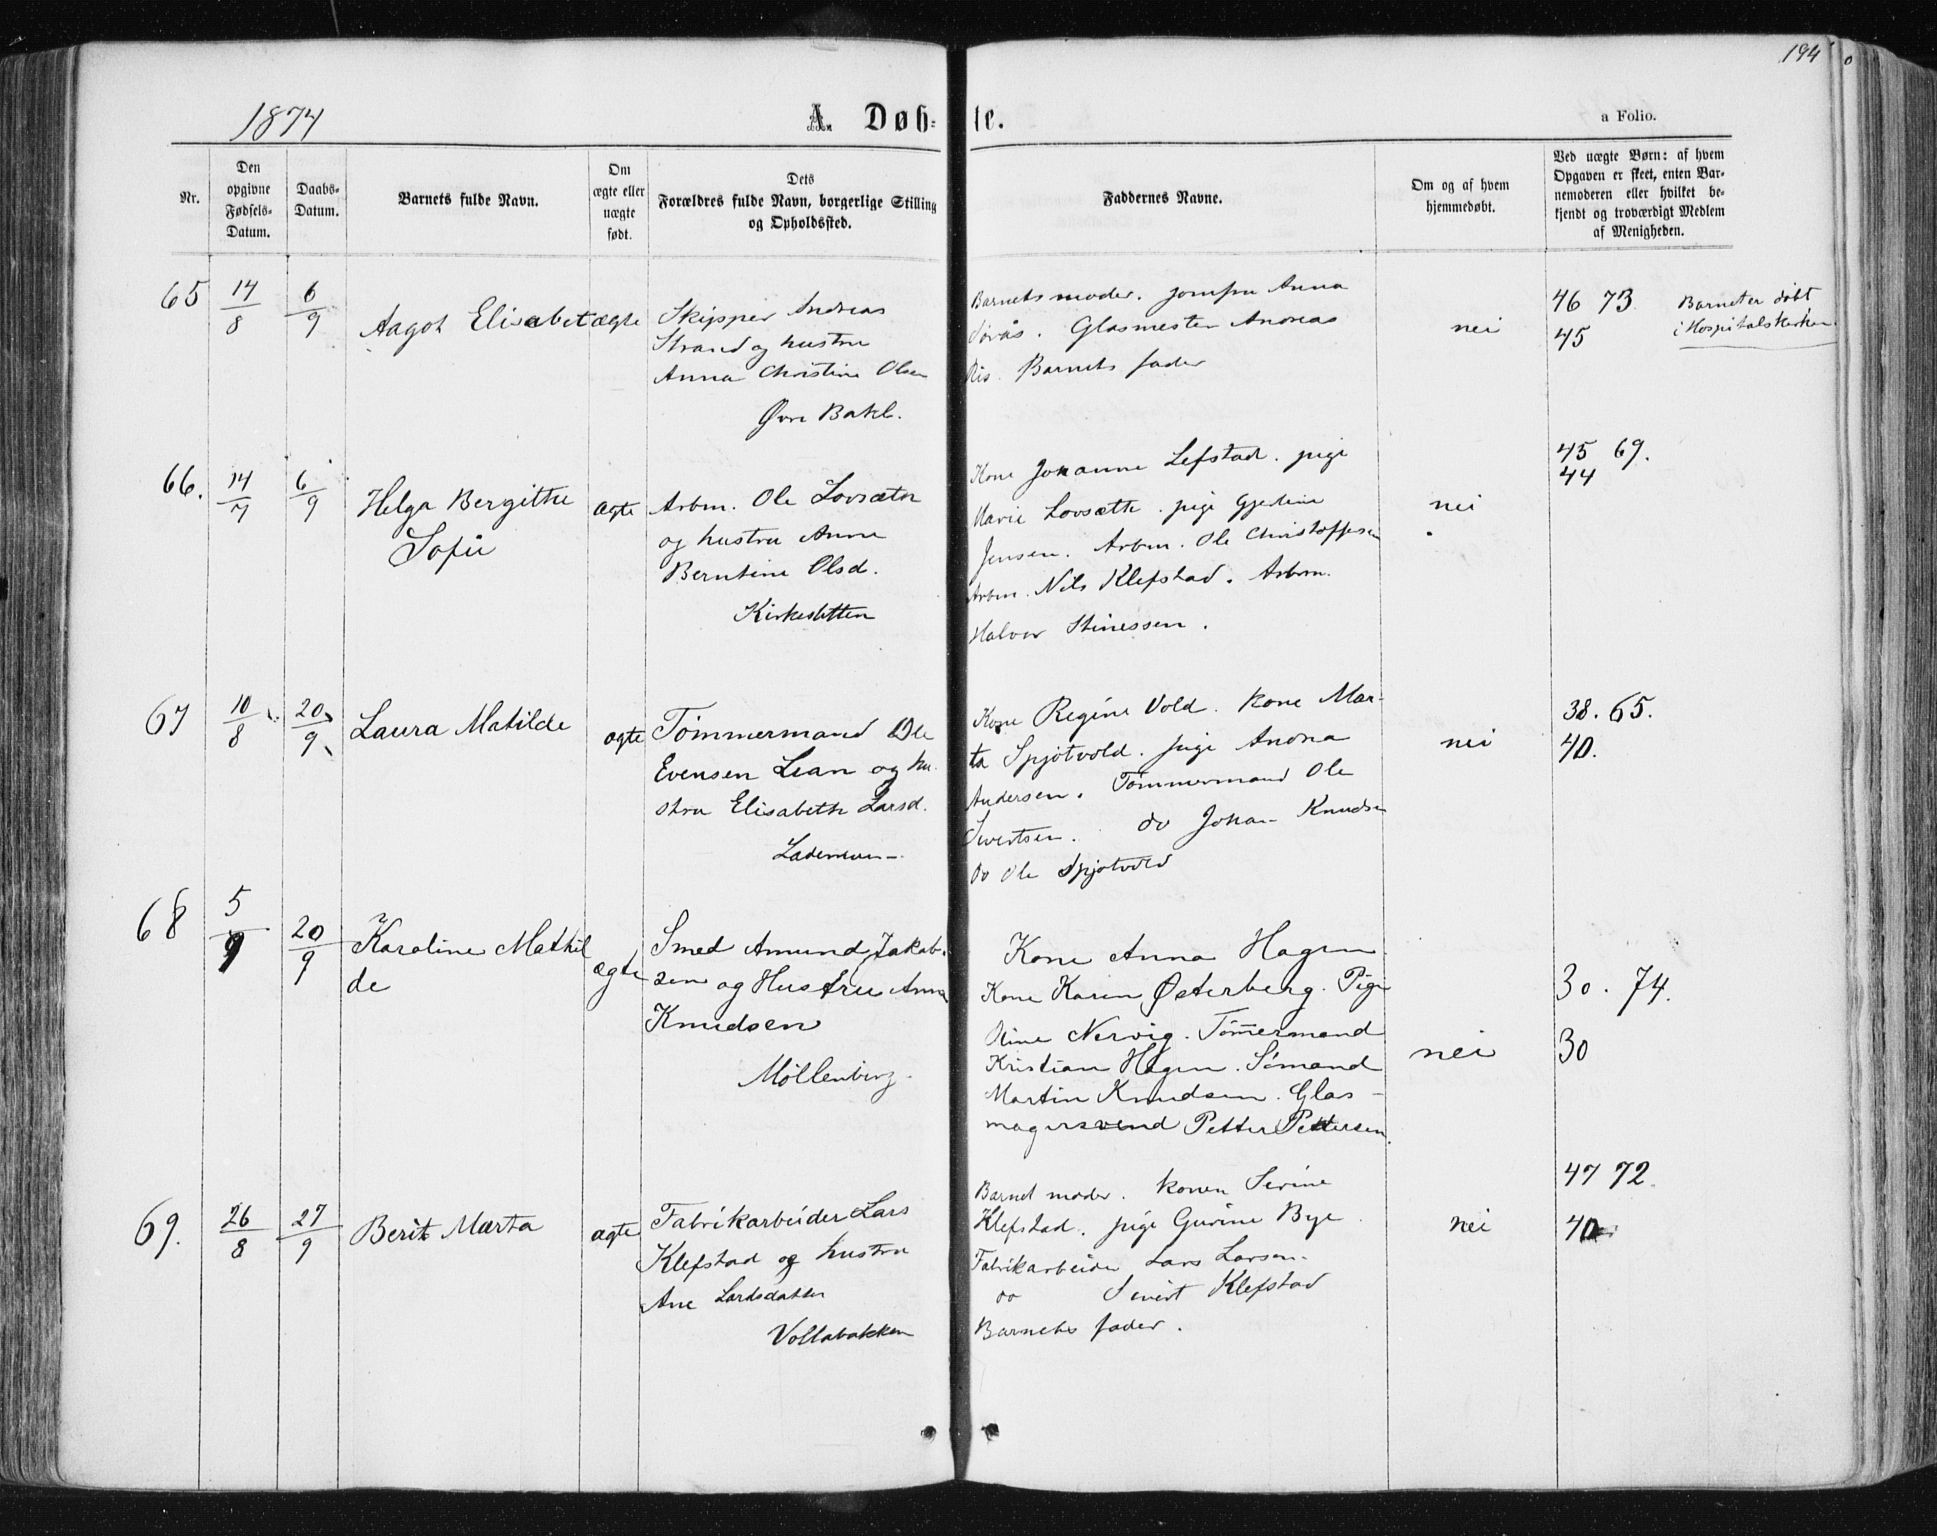 194
1874
A. Døb-
te.
a Folio.
Nr.
Den
opgivne
Fødsels-
Datum.
Daabs-
Datum.
Barnets fulde Navn.
Om
ægte eller
uægte
født.
Dets
Forældres fulde Navn, borgerlige Stilling
og Opholdssted.
Faddernes Navne.
Om og af hvem
hjemmedøbt.
Ved uægte Børn: af hvem
Opgaven er skeet, enten Bar-
nemoderen eller hvilket be-
kjendt og troværdigt Medlem
af Menigheden.
65
14/8
6/9
Aagot Elisabet
ægte
Skipper Andreas
Strand og hustru
Anna Christine Olsen
Øvre Bakl.
Barnets moder. jomfru Anna
Sørås. Glasmester Andreas
Ris. Barnets fader
nei
46 73
45
Barnet er døbt
i Hospitalskirken
66.
14/7
6/9
Helga Bergitthe
Sofie
ægte
Arbm. Ole Lovsæter
og hustru Anne
Berntine Olsd.
Kirkesletten
Kone Johanne Lefstad. pige
Marie Lovsætte. pige Gjertine
Jensen. Arbm. Ole Christoffersen
Arbm. Nils Klefstad. Arbm.
Halvor Stinessen.
nei
45 69.
44
67
10/8
20/9
Laura Matilde
ægte
Tømmermand Ole
Evensen Lian og hu-
stru Elisabeth Larsd.
Lademoen
Kone Regine Vold. Kone Mar-
ta Spjøtvold. pige Andrea
Andersen. Tømmermand Ole
Sivertsen. do Johan Knudsen
Do Ole Spjøtvold
nei
38. 65.
40.
68
5/9
20/9
Karoline Mathil
de
ægte
Smed Amund Jakob-
sen og Hustru Anna
Knudsen
Møllenberg.
Kone Anna Hagen
Kone Karen Østerberg. Pige
Nervig. Tømmermand
Kristian Hagen. Sømand
Martin Knudsen. Glas-
magersvend Petter Pettersen.
nei
30. 74.
30
69.
26/8
27/9
Berit Marta
ægte
Fabrikarbeider Lars
Klefstad og hustru
Ane Lardsdatter
Vollabakken
Barnet moder. konen Serine
Klefstad. pige Gurine Bye
Fabrikarbeider Lars Larsen.
do Sivert Klefstad
Barnets fader.
nei
47 72.
40